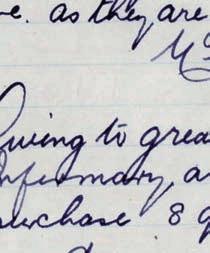 e. as they are
Owing to grea
nfirmary, a
urchase 8 g